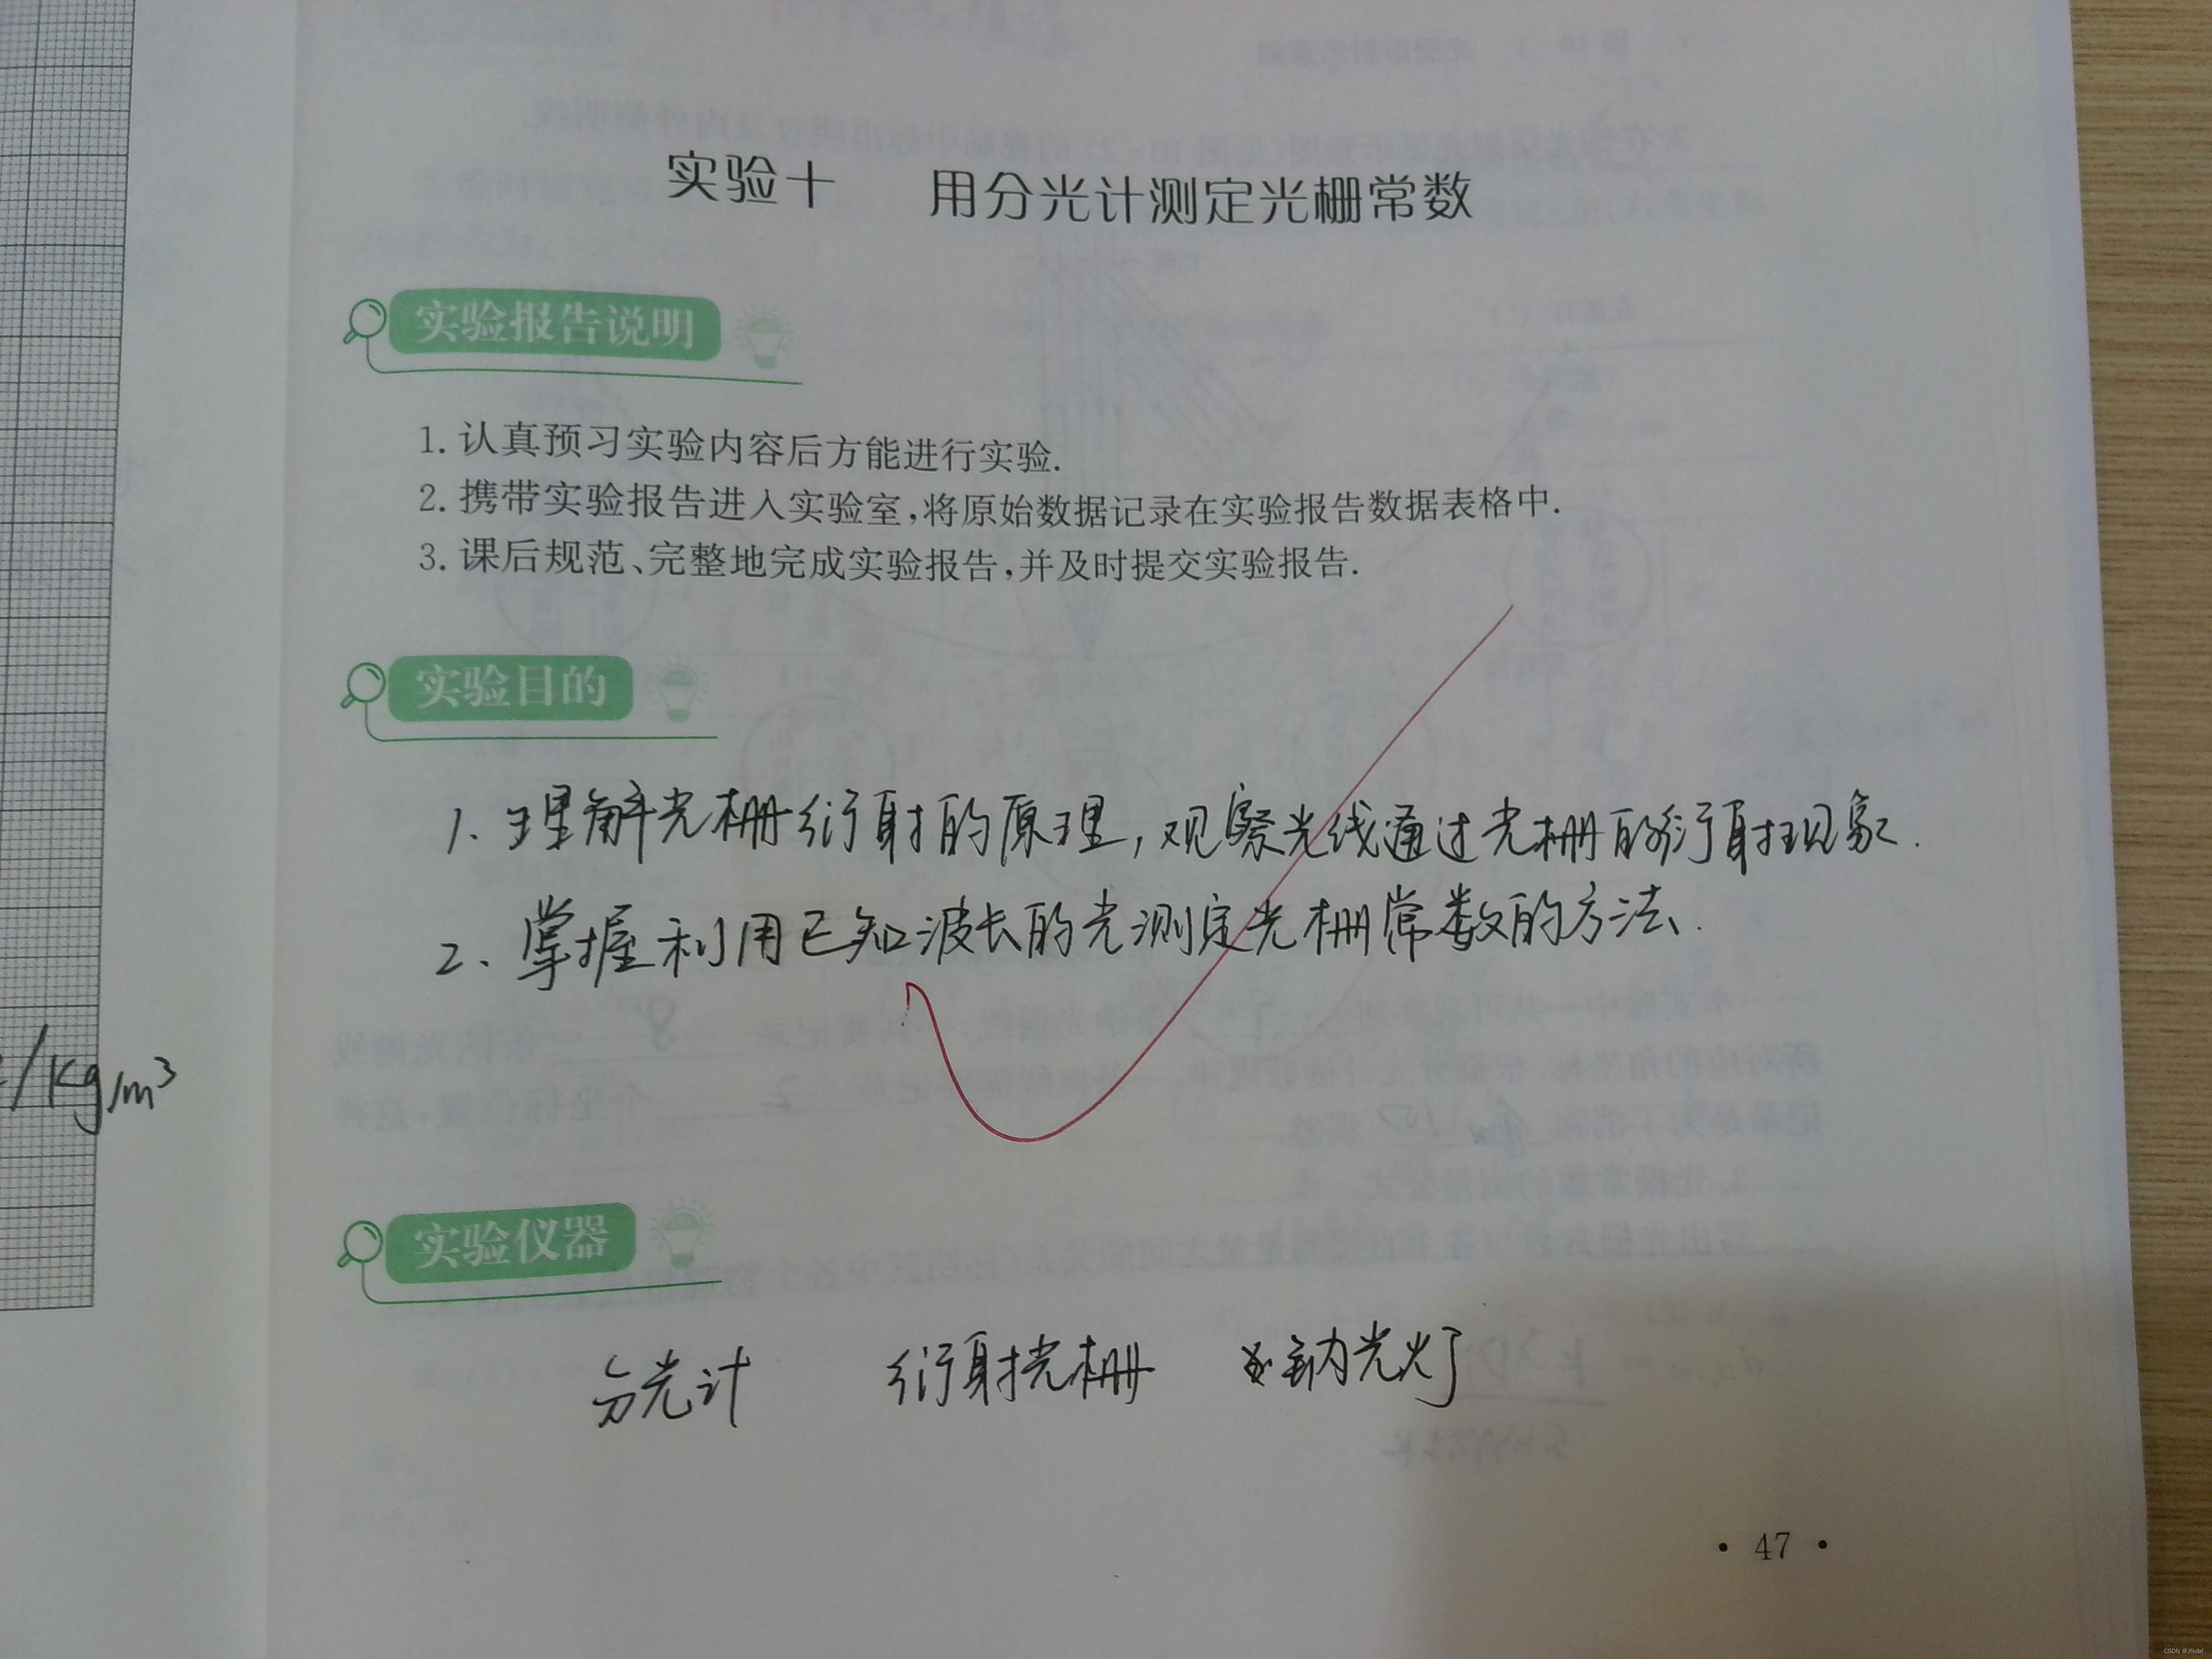 实验十 用分光计测定光栅常数
实验报告说明
1. 认真预习实验内容后方能进行实验.
2. 携带实验报告进入实验室,将原始数据记录在实验报告数据表格中.
3. 课后规范、完整地完成实验报告,并及时提交实验报告.
实验目的
1、理解光栅衍射的原理,观察光线通过光栅的衍射现象.
2、掌握利用已知波长的光测定光栅常数的方法.
/kg/m³
实验仪器
分光计 衍射光栅 钠光灯
· 47 ·